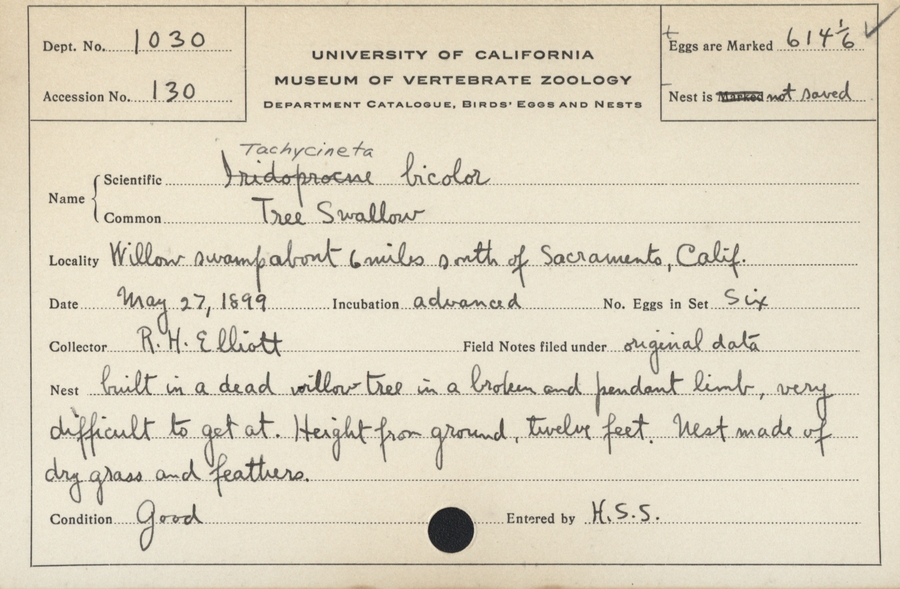 Dept. No. 1030
Accession No. 130
UNIVERSITY OF CALIFORNIA
MUSEUM OF VERTEBRATE ZOOLOGY
DEPARTMENT CATALOGUE, BIRDS' EGGS AND NESTS
Eggs are Marked 614 1/6
Nest is Marked not saved
Tachycineta
Name Scientific Iridoprocne bicolor
Common Tree Swallow
Locality Willow swamp about 6 miles south of Sacramento, Calif.
Date May 27, 1899 Incubation advanced No. Eggs in Set Six
Collector R. H. Elliott Field Notes filed under original data
Nest built in a dead willow tree in a broken and pendant limb, very
difficult to get at. Height from ground, twelve feet. Nest made of
dry grass and feathers.
Condition Good Entered by H.S.S.